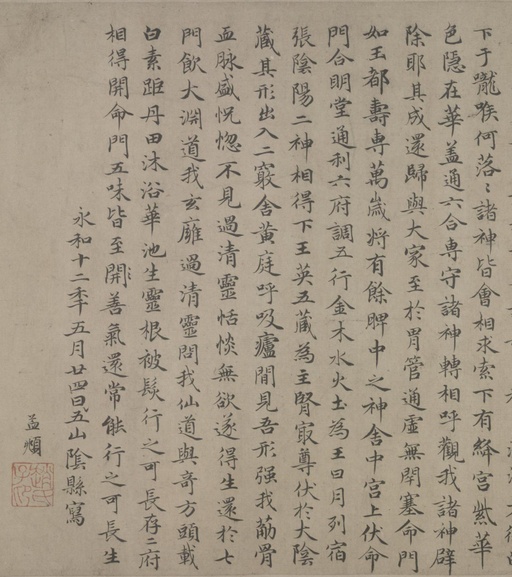 下于嚨喉何落〻諸神皆會相求索下有絳宮紫華
色隱在華盖通六合専守諸神轉相呼觀我諸神辟
除耶其成還歸與大家至於胃管通虛無閉塞命門
如王都壽専萬歲将有餘脾中之神舍中宮上伏命
門合明堂通利六府調五行金木水火土為王日月列宿
張陰陽二神相得下王英五藏為主腎冣尊伏於大陰
藏其形出入二竅舍黄庭呼吸廬間見吾形强我筋骨
血脉盛怳惚不見過清靈恬惔無欲遂得生還於七
門飲大淵道我玄廱過清靈問我仙道與竒方頭載
白素距丹田沐浴華池生靈根被髮行之可長存二府
相得開命門五味皆至開善氣還常能行之可長生
永和十二年五月廿四日五山陰縣寫
孟頫